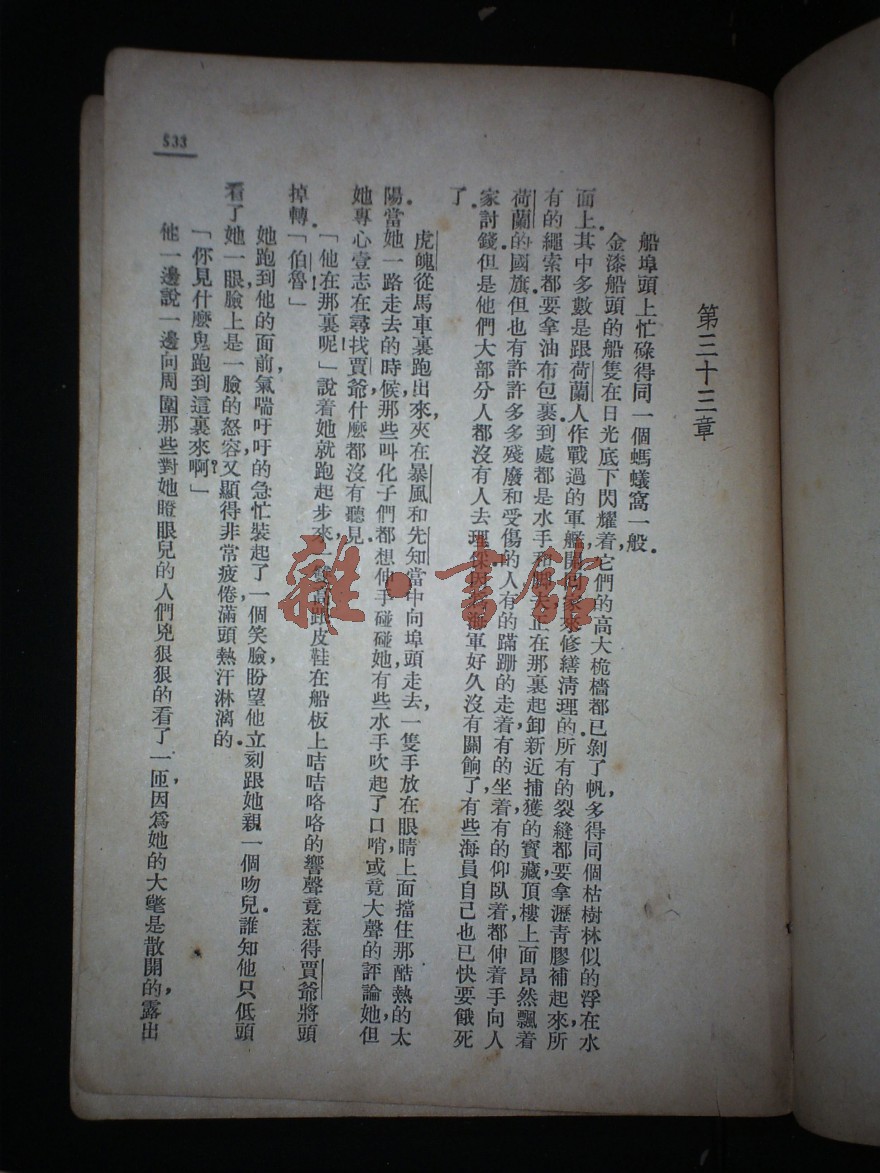 533
第三十三章
船埠頭上忙碌得同一個螞蟻窩一般。
金漆船頭的船隻在日光底下閃耀着，它們的高大桅檣都已剝了帆，多得同個枯樹林似的浮在水
面上。其中多數是跟荷蘭人作戰過的軍艦，開回來修繕清理的。所有的裂縫都要拿瀝青膠補起來，所
有的繩索都要拿油布包裹。到處都是水手和 正在那裏起卸新近捕獲的寶藏，頂樓上面昂然飄着
荷蘭的國旗。但也有許許多多殘廢和受傷的人，有的蹣跚的走着，有的坐着，有的仰臥着，都伸着手向人
家討錢。但是他們大部分人都沒有人去理 海軍好久沒有關餉了，有些海員自己也已快要餓死
了。
虎魄從馬車裏跑出來，夾在暴風和先知當中向埠頭走去，一隻手放在眼睛上面擋住那酷熱的太
陽。當她一路走去的時候，那些叫化子們都想伸手碰碰她，有些水手吹起了口哨，或竟大聲的評論她，但
她專心壹志在尋找賈爺，什麼都沒有聽見。
「他在那裏呢！」說着她就跑起步來，一雙高跟皮鞋在船板上咭咭咯咯的響聲竟惹得賈爺將頭
掉轉。「伯魯！」
她跑到他的面前，氣喘吁吁的急忙裝起了一個笑臉，盼望他立刻跟她親一個吻兒。誰知他只低頭
看了她一眼，臉上是一臉的怒容，又顯得非常疲倦，滿頭熱汗淋漓的。
「你見什麼鬼跑到這裏來啊？」
他一邊說一邊向周圍那些對她瞪眼兒的人們兇狠狠的看了一匝，因爲她的大氅是散開的，露出
雜·書館